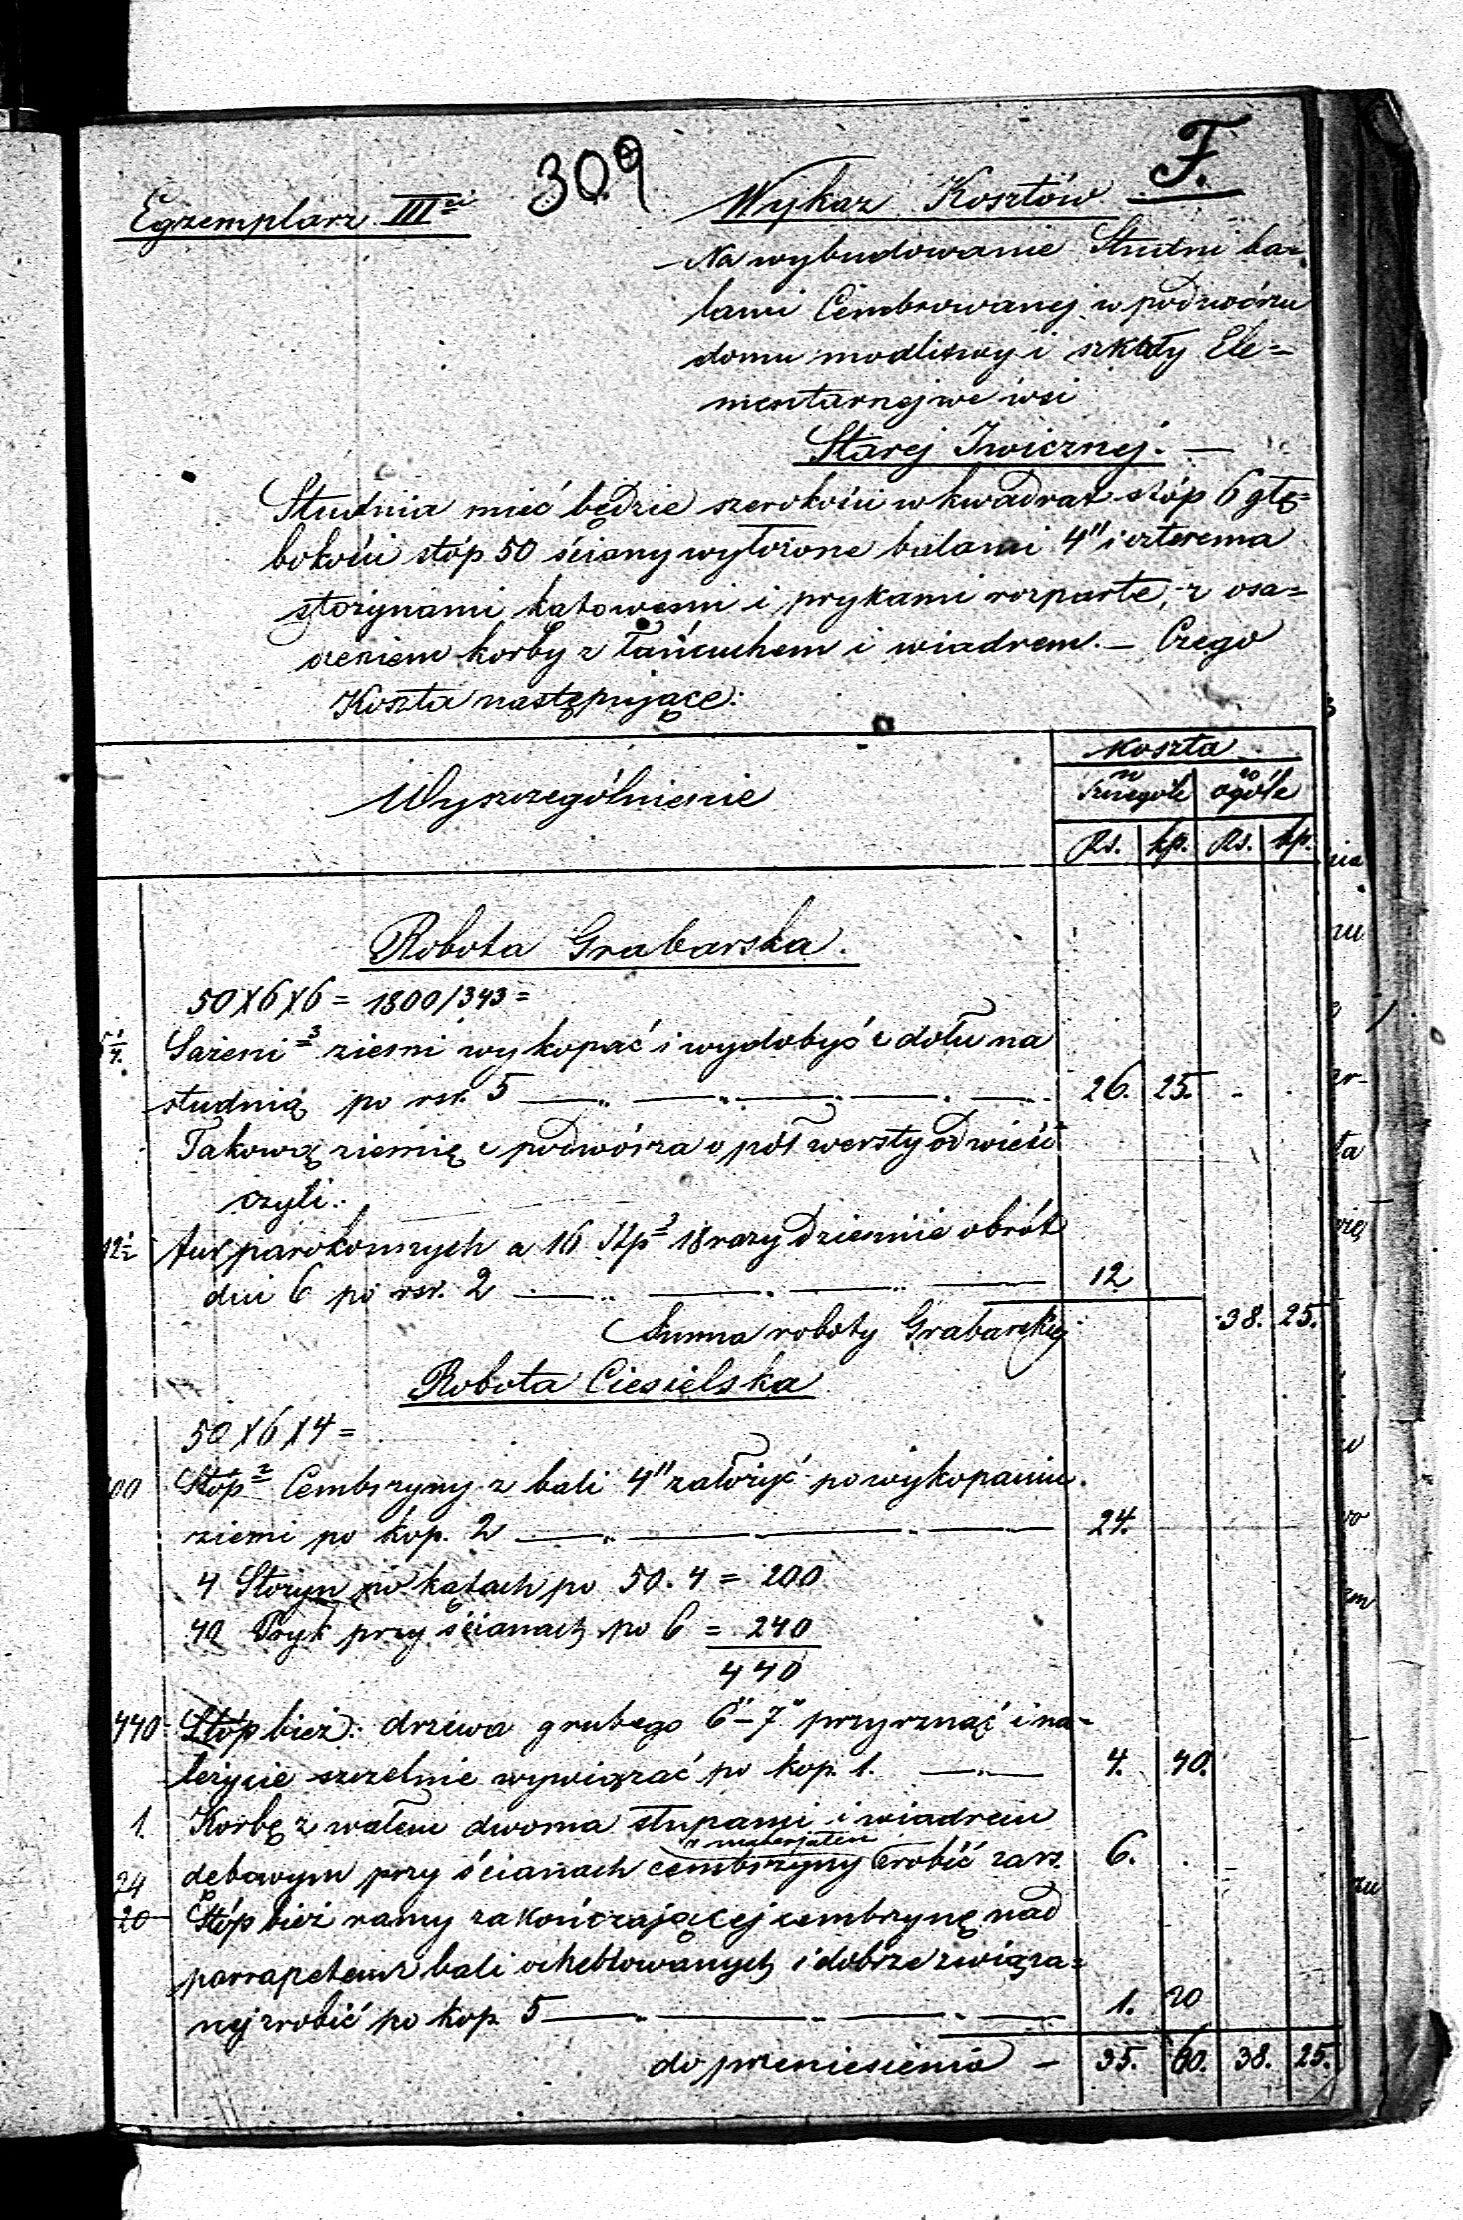 309
F.
Egzemplarz III ci
Wykaz Kosztów
Na wybudowanie Studni ba-
lami Cembrowanej w podwórzu
domu modlitwy i szkoły Ele=
mentarnej we wsi
Starej Iwicznej. —
Studnia mieć będzie szerokości w kwadrat stóp 6 głę=
bokości stóp 50 ściany wyłożone balami 4" i czterema
storzynami kątowemi i prykami rozparte, z osa=
dzeniem korby z łańcuchem i wiadrem. — Czego
Koszta następujące:
Wyszczególnienie
Koszta
w szczególe w ogóle
Rs. kp. Rs. kp.
Robota Grabarska.
50 X 6 X 6 = 1800/343 =
5 1/4. Sażeni 3 ziemi wykopać i wydobyć z dołu na
studnią po rsr. 5 26. 25.
Takową ziemię z podwórza o pół wersty odwieść
czyli:
12 1/2 fur parokonnych a 16 Stp 3 18 razy dziennie obrót
dni 6 po rsr. 2 12
Summa roboty Grabarskiej 38. 25.
Robota Ciesielska
50 X 6 X 4 =
00 Stóp 2 Cembrzyny z bali 4" założyć po wykopaniu
ziemi po kop. 2 24.
4 Storzyn po kątach po 50. 4 = 200
40 Pryk przy ścianach po 6 = 240
440
440 Stóp bież: drzewa grubego 6"-7" przyrznąć i na=
leżycie szczelnie wywiązać po kop. 1. 4. 40.
1. Korbę z wałem dwoma słupami i wiadrem
z materjałem
dębowym przy ścianach cembrzyny zrobić za rs. 6.
24
20 Stóp bież ramy zakończającej cembrzynę nad
parrapetem z bali ocheblowanych i dobrze związa=
nej zrobić po kop. 5 1. 20
do przeniesienia — 35. 60. 38. 25.